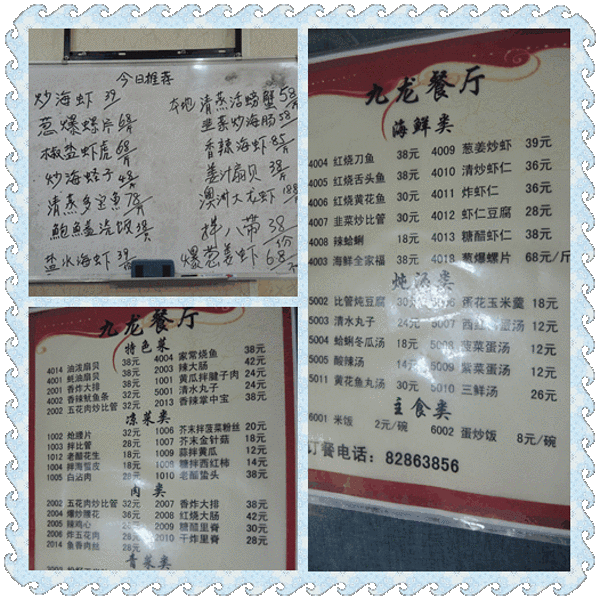 今日推荐
炒海虾 39
本地清蒸活螃蟹 58
葱爆螺片 68
韭菜炒海肠 58
椒盐虾虎 68
香辣海虾 85
炒海蛏子 48
姜汁扇贝 38
清蒸多宝鱼 78
澳洲大龙虾 188
拌八带 38
盐水海虾 39
爆葱姜虾 68
九龙餐厅
海鲜类
4004 红烧刀鱼 38元 4009 葱姜炒虾 39元
4005 红烧舌头鱼 38元 4010 清炒虾仁 36元
4006 红烧黄花鱼 30元 4011 炸虾仁 36元
4007 韭菜炒比管 30元 4012 虾仁豆腐 28元
4008 辣蛤蜊 18元 4013 糖醋虾仁 39元
4003 海鲜全家福 38元 4018 葱爆螺片 68元/斤
炖汤类
5002 比管炖豆腐 30元 蛋花玉米羹 18元
5003 清水丸子 24元 5007 西红柿蛋汤 12元
5004 蛤蜊冬瓜汤 18元 5008 菠菜蛋汤 12元
5005 酸辣汤 14元 5009 紫菜蛋汤 12元
5011 黄花鱼丸汤 30元 5010 三鲜汤 26元
主食类
6001 米饭 2元/碗 6002 蛋炒饭 8元/碗
订餐电话：82863856
九龙餐厅
特色菜
4014 油泼扇贝 38元 4004 家常烧鱼 38元
4001 蚝油扇贝 38元 2003 辣大肠 42元
2001 香炸大排 38元 1001 黄瓜拌腱子肉 24元
4002 香辣鱿鱼条 32元 5001 清水丸子 24元
2002 五花肉炒比管 32元 2013 香辣掌中宝 38元
凉菜类
1002 炝腰片 32元 1006 芥末拌菠菜粉丝 20元
1003 拌比管 28元 1007 芥末金针菇 18元
1012 老醋花生 18元 1009 蒜拌黄瓜 12元
1004 拌海蜇皮 18元 1008 糖拌西红柿 14元
1005 白沾肉 28元 1010 老醋蜇头 38元
肉类
2002 五花肉炒比管 32元 2007 香炸大排 38元
2004 爆炒腰花 36元 2008 红烧大肠 42元
2005 辣鸡心 26元 2009 糖醋里脊 30元
2006 炸五花肉 28元 2010 干炸里脊 28元
2014 鱼香肉丝 28元
青菜类